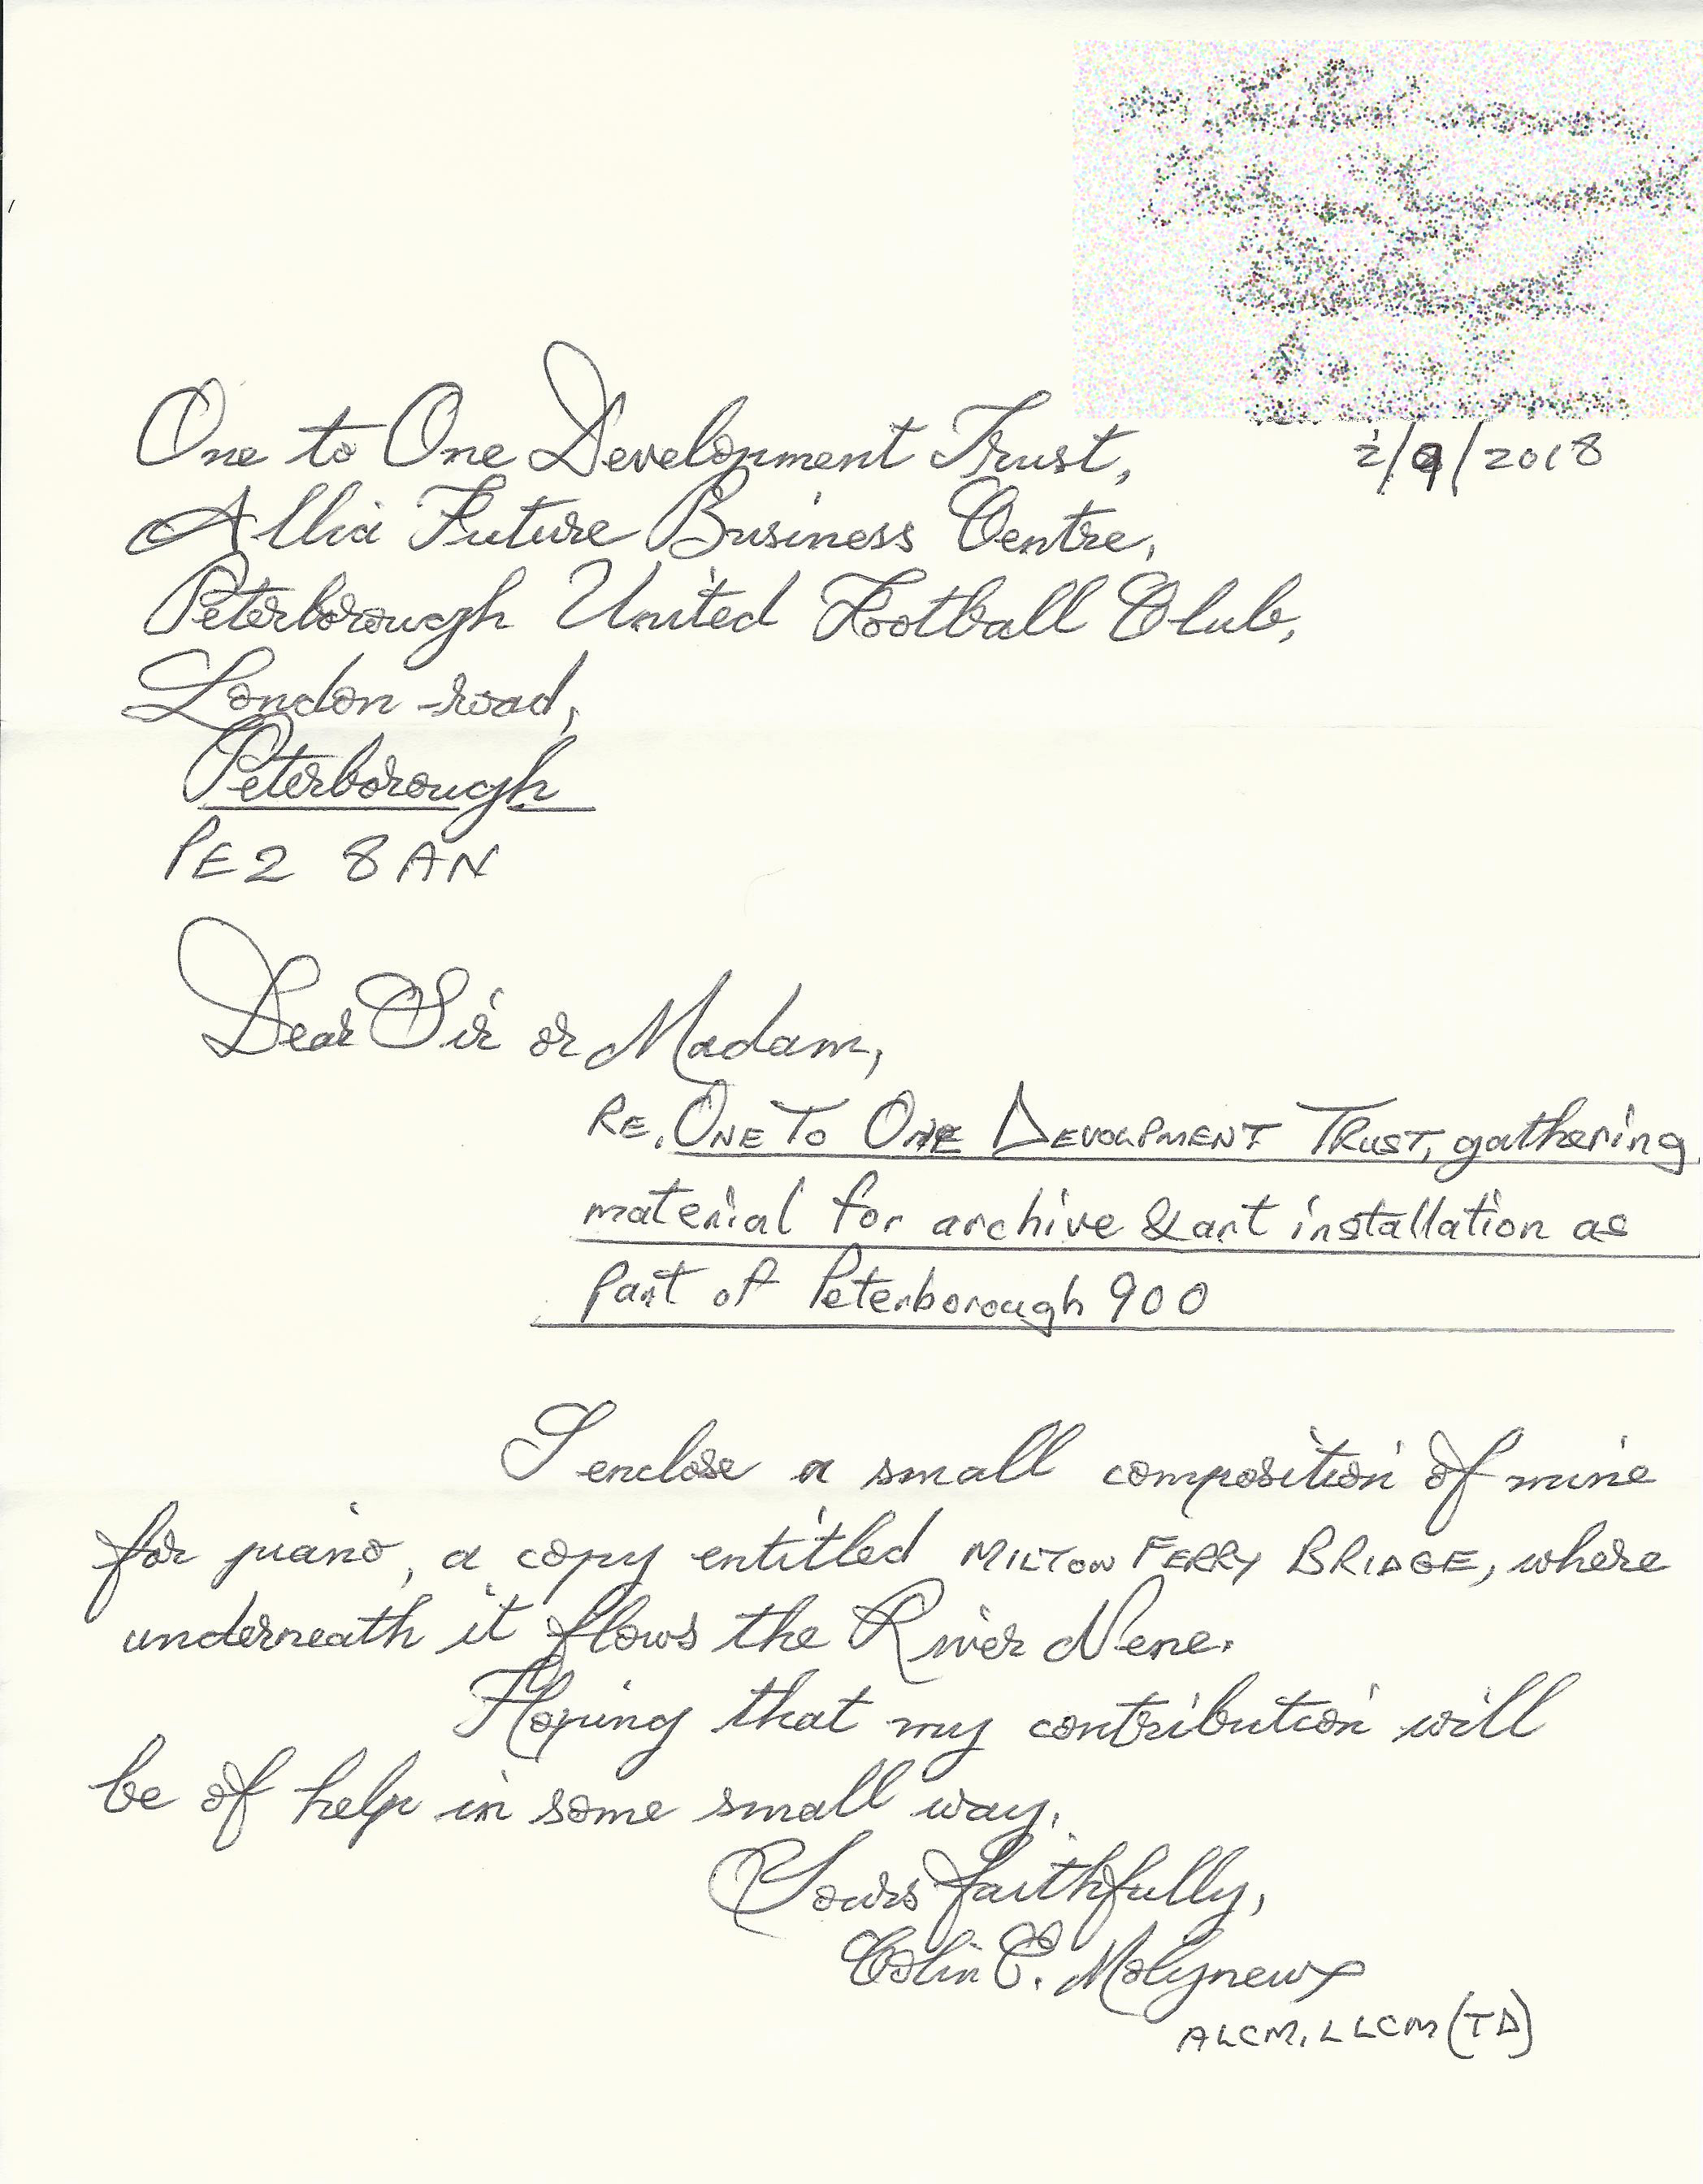 One to One Development Trust,
2/9/2018
Allia Future Business Centre,
Peterborough United Football Club,
London-road,
Peterborough
PE2 8AN
Dear Sir or Madam,
RE. ONE TO ONE DEVOLPMENT TRUST, gathering
material for archive & art installation as
part of Peterborough 900
I enclose a small composition of mine
for piano, a copy entitled MILTON FERRY BRIDGE, where
underneath it flows the River Nene.
Hoping that my contribution will
be of help in some small way.
Yours faithfully,
Colin C. Molyneux
ALCM, LLCM (TD)